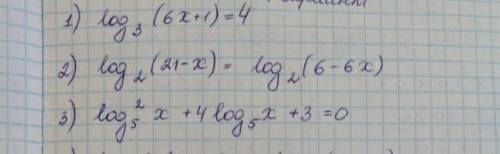 1) log₃ (6x+1) = 4
2) log₂ (21-x) = log₂ (6-6x)
3) log₅² x + 4 log₅ x + 3 = 0